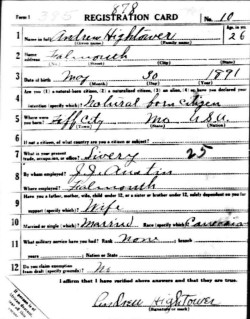 878
Form 1 REGISTRATION CARD No. 10
1 Name in full Andrew Hightower Age in yrs. 26
(Given name) (Family name)
2 Home address Falmouth
(No.) (Street) (City) (State)
3 Date of birth May 30 1891
(Month) (Day) (Year)
4 Are you (1) a natural-born citizen, (2) a naturalized citizen, (3) an alien, (4) or have you declared your
intention (specify which)? Natural born Citizen
5 Where were you born? Jeff City Mo USA
(Town) (State) (Nation)
6 If not a citizen, of what country are you a citizen or subject?
7 What is your present trade, occupation, or office? Livery 25
8 By whom employed? J. J. Austin
Where employed? Falmouth
9 Have you a father, mother, wife, child under 12, or a sister or brother under 12, solely dependent on you for
support (specify which)? Wife
10 Married or single (which)? Married Race (specify which)? Caucasian
11 What military service have you had? Rank None branch
years Nation or State
12 Do you claim exemption from draft (specify grounds)? No
I affirm that I have verified above answers and that they are true.
Andrew Hightower
(Signature or mark)